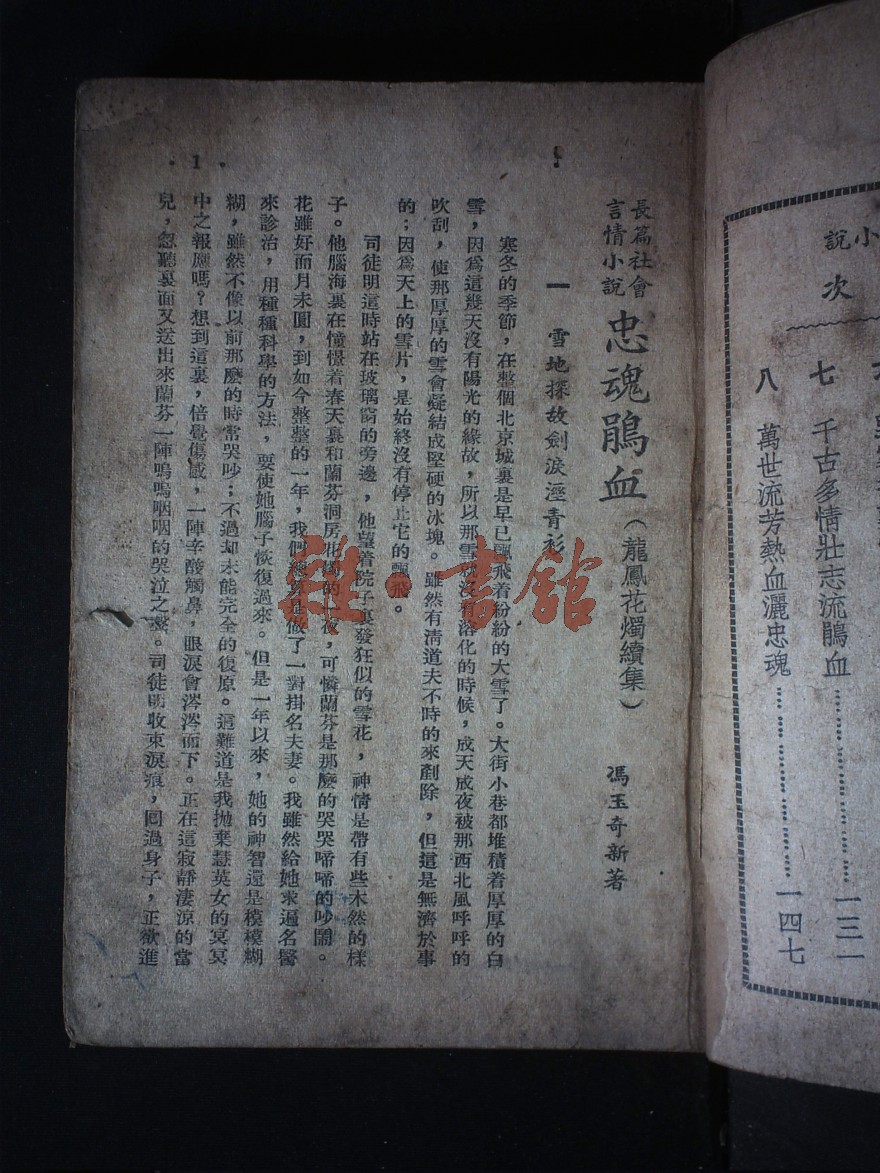 小
說
次
七 千古多情壯志流鵑血………………一三一
八 萬世流芳熱血灑忠魂………………一四七
長篇社會
言情小說
忠魂鵑血(龍鳳花燭續集) 馮玉奇新著
一 雪地探故劍淚溼青衫
寒冬的季節,在整個北京城裏是早已飄飛着紛紛的大雪了。大街小巷都堆積着厚厚的白
雪,因爲這幾天沒有陽光的緣故,所以那雪沒有溶化的時候,成天成夜被那西北風呼呼的
吹刮,使那厚厚的雪會凝結成堅硬的冰塊。雖然有清道夫不時的來剷除,但這是無濟於事
的;因爲天上的雪片,是始終沒有停止它的飄飛。
司徒明這時站在玻璃窗的旁邊,他望着院子裏發狂似的雪花,神情是帶有些木然的樣
子。他腦海裏在憧憬着春天裏和蘭芬洞房花燭的一夜,可憐蘭芬是那麼的哭哭啼啼的吵鬧。
花雖好而月未圓,到如今整整的一年,我們是做了一對掛名夫妻。我雖然給她求遍名醫
來診治,用種種科學的方法,要使她腦子恢復過來。但是一年以來,她的神智還是模模糊
糊,雖然不像以前那麼的時常哭吵;不過却未能完全的復原。這難道是我拋棄慧英女的冥冥
中之報應嗎?想到這裏,倍覺傷感,一陣辛酸觸鼻,眼淚會滂滂而下。正在這寂靜淒涼的當
兒,忽聽裏面又送出來蘭芬一陣嗚嗚咽咽的哭泣之聲。司徒明收束淚痕,回過身子,正欲進
1
雜·書館